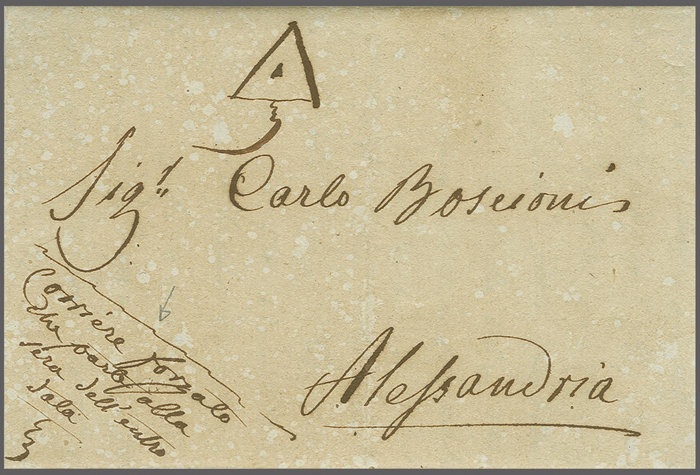 Sig.r Carlo Boscioni
Alessandria
Corriere forzato
che parte alla
sera dell'entro
data